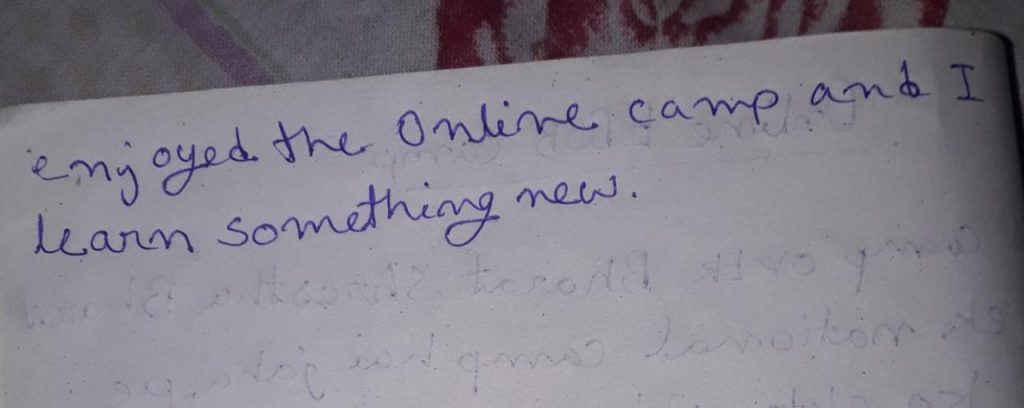 enjoyed the Online camp and I
learn something new.